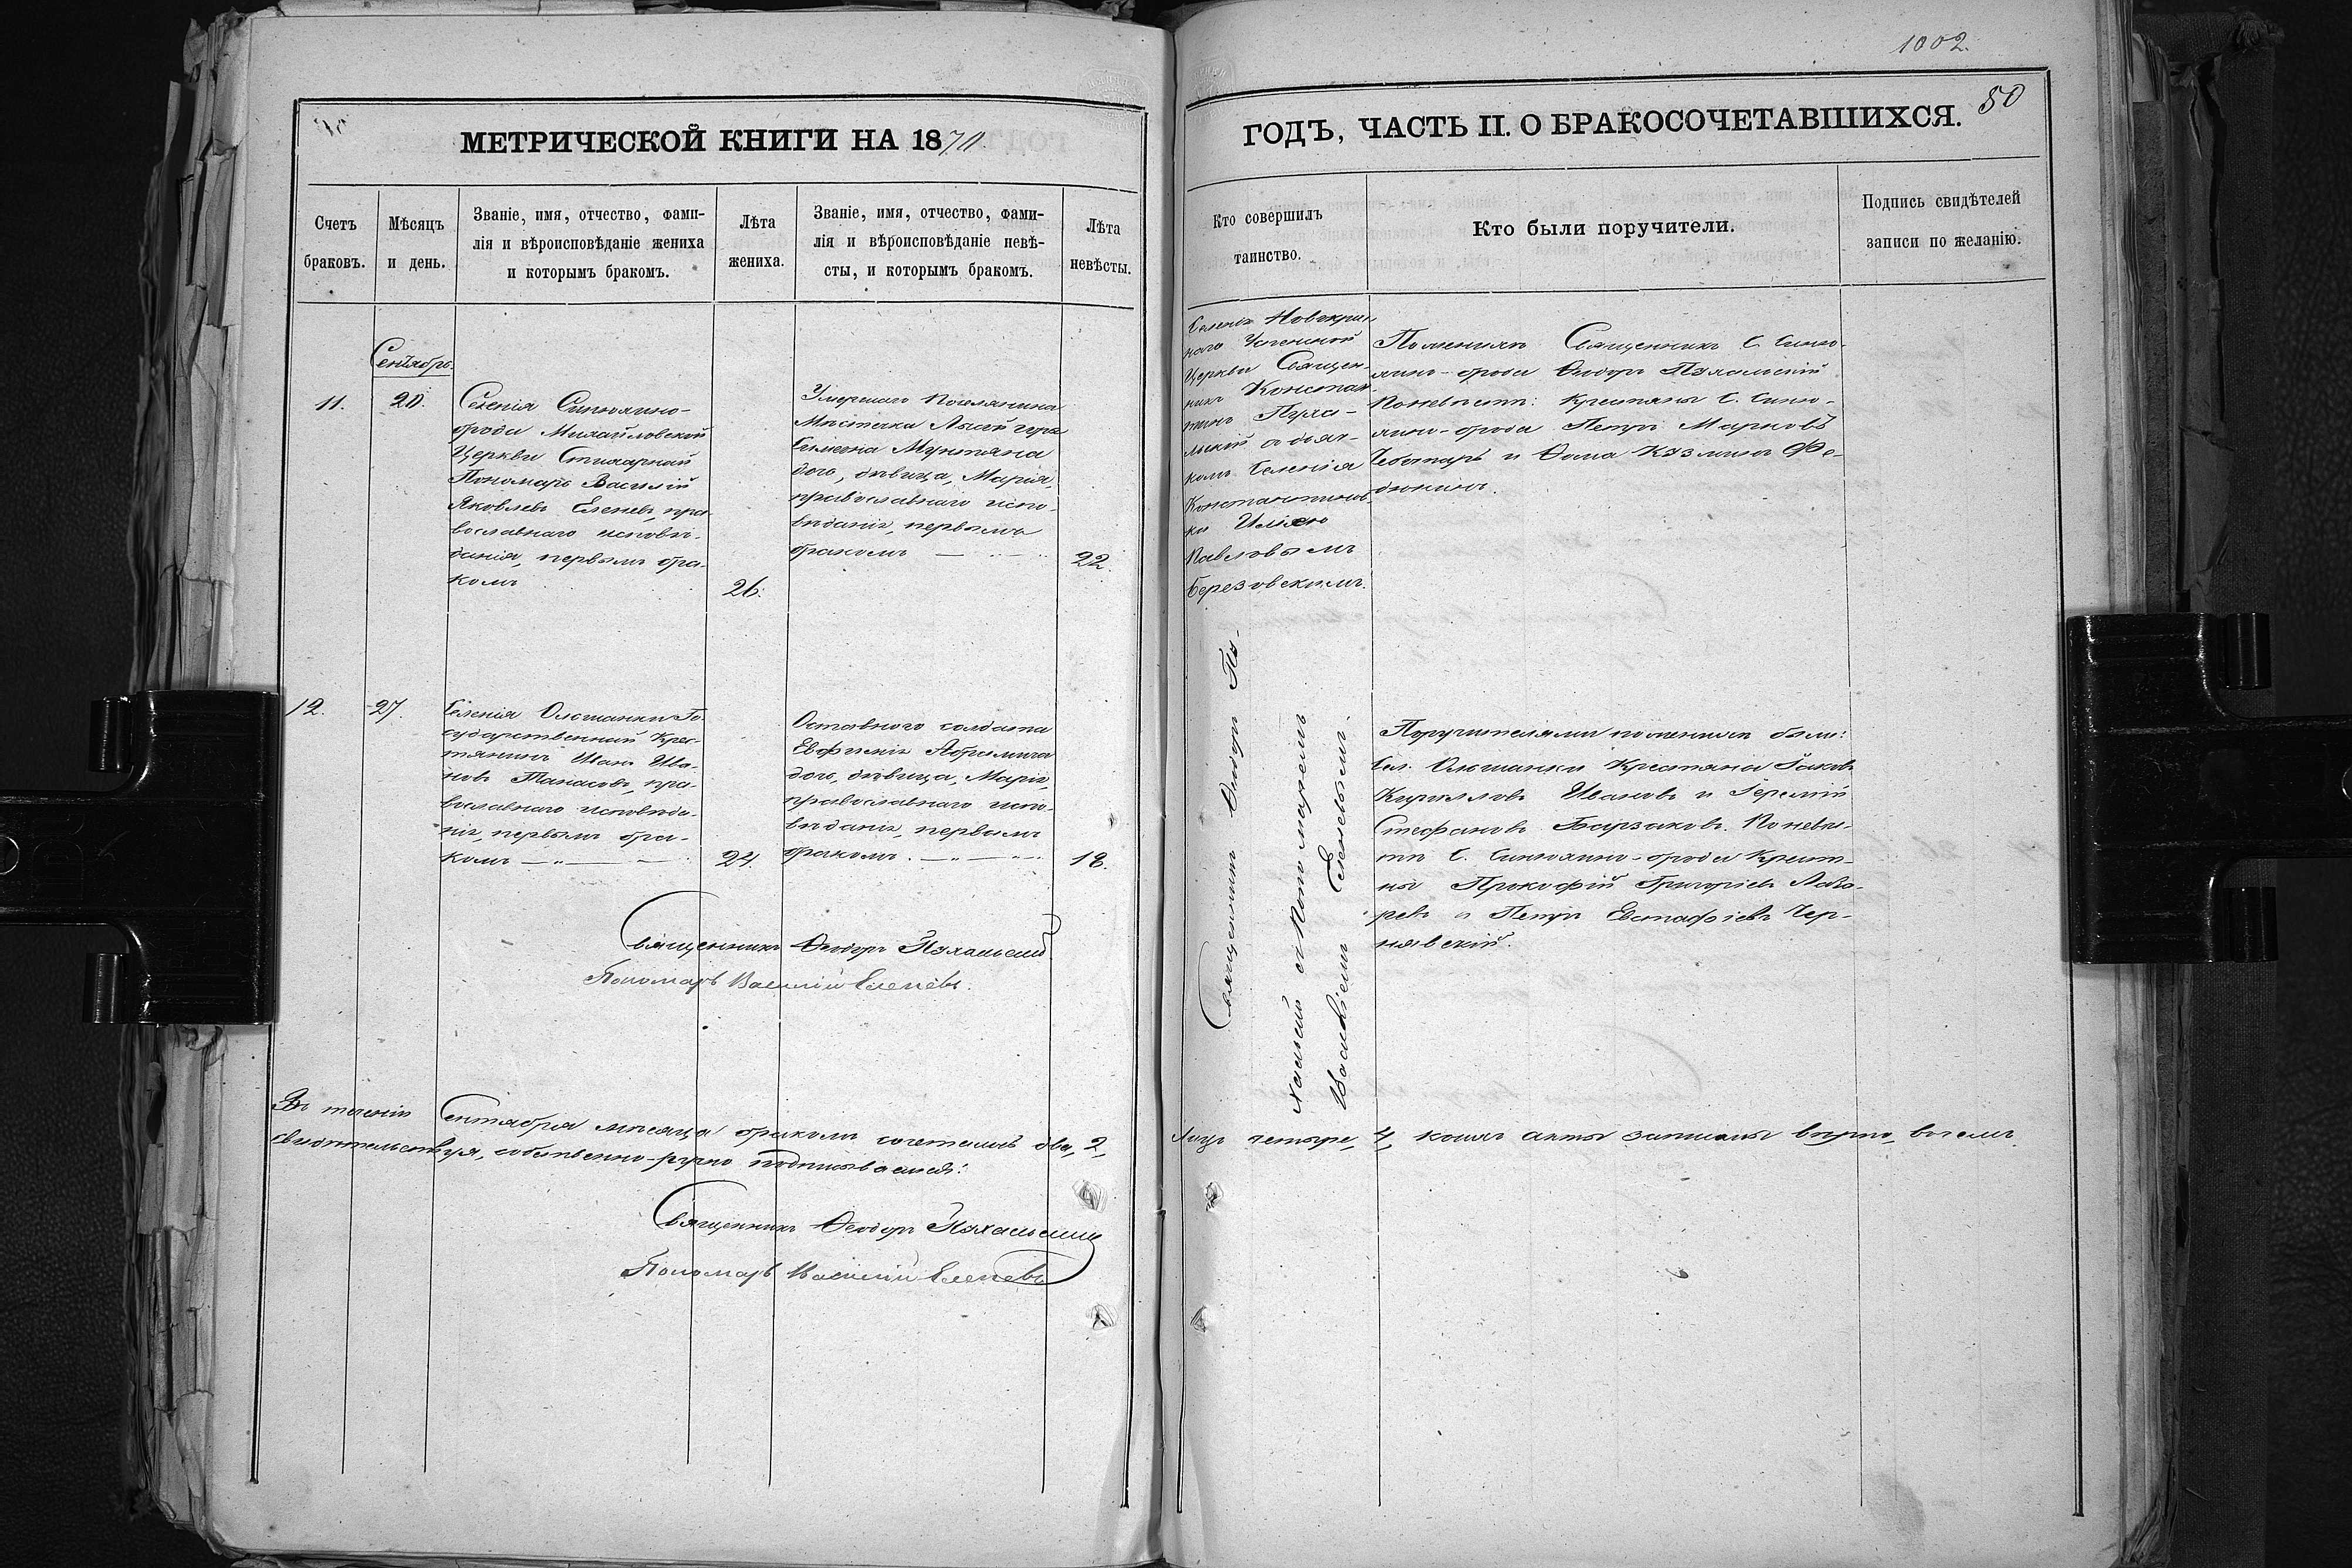 1002.
50
МЕТРИЧЕСКОЙ КНИГИ НА 1870
ГОДЪ, ЧАСТЬ II. О БРАКОСОЧЕТАВШИХСЯ.
Счетъ
браковъ.
Мѣсяцъ
и день.
Званіе, имя, отчество, фами-
лія и вѣроисповѣданіе жениха
и которымъ бракомъ.
Лѣта
жениха.
Званіе, имя, отчество, фами-
лія и вѣроисповѣданіе невѣ-
сты, и которымъ бракомъ.
Лѣта
невѣсты.
Кто совершилъ
таинство.
Кто были поручители.
Подпись свидѣтелей
записи по желанію.
Сентябрь.
11.
20.
Селенія Синюхино-
брода Михайловской
Церкви Стихарный
Пономарь Василій
Яковлевъ Еленевъ, пра-
вославнаго исповѣ-
данія, первымъ бра-
комъ
26.
Умершаго Поселянина
Мѣстечка Лысой горы
Симеона Мунтяна
дочь, дѣвица, Марія,
православнаго испо-
вѣданія, первымъ
бракомъ
22.
Селенія
наго Успенской
Церкви Священ-
никъ Констан-
тинъ Пуха-
льскій съ дьяч-
комъ Селенія
Константинов-
ки Иліею
Павловымъ
Березовскимъ.
По женихѣ Священникъ С. Синю-
хино-брода Ѳеодоръ Пухальскій
По невѣстѣ: Крестьяны С. Синю-
хино-брода Петръ Марковъ
Чеботарь и Ѳома Кузминъ Фе-
дюкинъ.
12.
27.
Селенія Ольшанки Го-
сударственный Крес-
тьянинъ Иванъ Ива-
новъ Танасовъ, пра-
вославнаго исповѣда-
нія, первымъ бра-
комъ
24.
Отставного солдата
Евфимія Абрамича
дочь, дѣвица, Марія,
православнаго испо-
вѣданія, первымъ
бракомъ.
18.
Священникъ Ѳеодоръ Пу-
хальскій съ Пономаремъ
Василіемъ Еленевымъ.
Поручителями по женихѣ были:
Сел. Ольшанки Крестьяна Іаковъ
Кирилловъ Ивановъ и Іеремій
Стефановъ Барзаковъ. По невѣс-
тѣ С. Синюхино-брода Крестья-
ны Прокофій Григоріевъ Лаза-
ревъ и Петръ Евстафіевъ Чер-
нявскій.
Священникъ Ѳеодоръ Пухальскій
Пономарь Василій Еленевъ.
Въ теченіи Сентября мѣсяца бракомъ сочеталось два, 2,
Лицъ четыре, 4, коихъ акты записаны вѣрно, въ чемъ
свидѣтельствуя, собственно-ручно подписываемся:
Священникъ Ѳеодоръ Пухальскій
Пономарь Василій Еленевъ